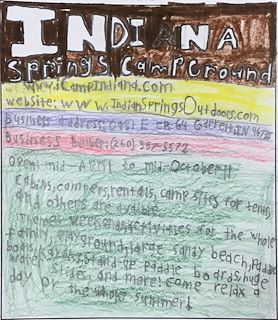 INDIANA
Springs Campground
www.iCampIndiana.com
website: www.IndianSpringsOutdoors.com
Business address: 0981 E CR 64 Garrett IN 46738
Business Number: (260) 357-5572
Open mid-April to mid-October!!
Cabins, campers, rentals, camp sites for tents,
and others are
summer weekend activities for the whole
family playground, large sandy beach, paddle
boats, kayaks, stand-up paddle boards, huge
water slides, and more! Come relax a
day or the whole summer!